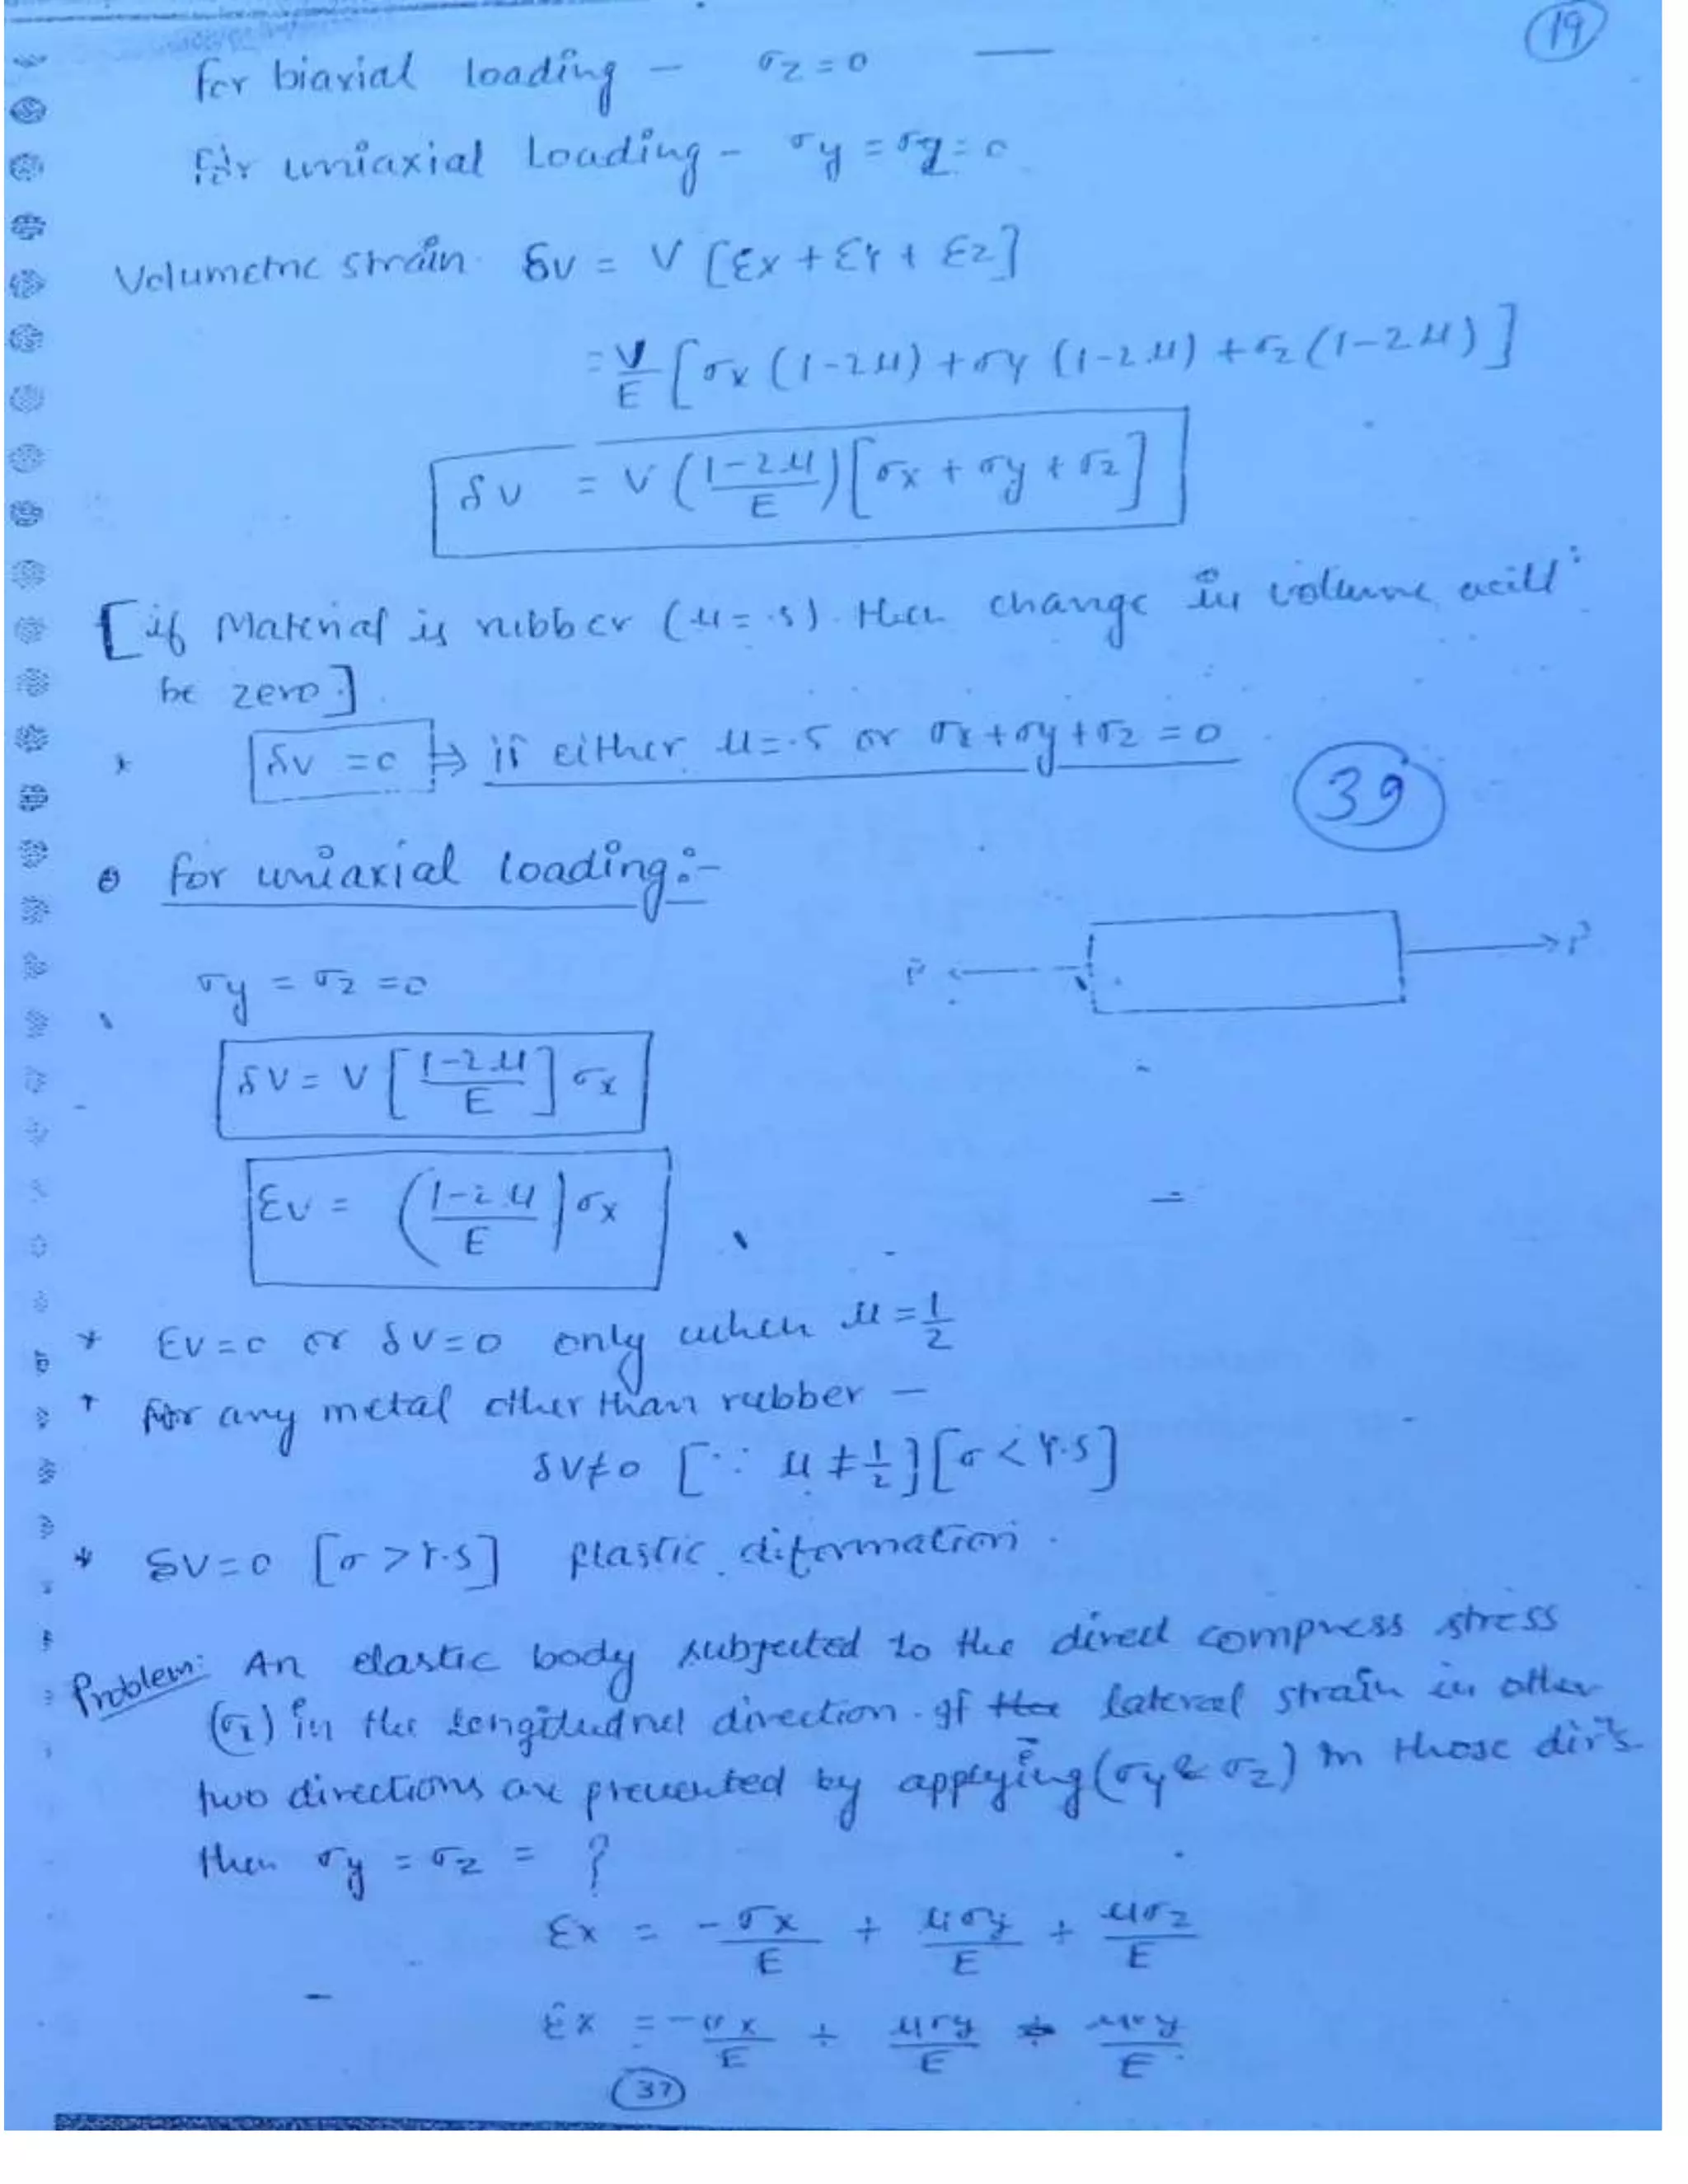 19
for biaxial loading - σz = 0 —
for uniaxial Loading - σy = σz = 0
Volumetric strain δv = V [εx + εy + εz]
= V/E [σx (1-2μ) + σy (1-2μ) + σz (1-2μ)]
δv = V (1-2μ/E) [σx + σy + σz]
[if Material is rubber (μ = .5). then change in volume will
be zero.]
* δv = 0 ⇒ if either μ = .5 or σx + σy + σz = 0
39
for uniaxial loading:-
σy = σz = 0
P ← → P
δV = V [1-2μ/E] σx
εv = (1-2μ/E) σx
* εv = 0 or δv = 0 only when μ = 1/2
* for any metal other than rubber —
δV ≠ 0 [∵ μ ≠ 1/2] [σ < Y.S]
* δV = 0 [σ > Y.S] plastic diformation.
Problem: An elastic body subjected to the direct compress stress
(σx) in the Longitudnel direction. If the lateral strain in other
two directions are prevented by applying (σy & σz) in those dirns
then σy = σz = ?
εx = -σx/E + μσy/E + μσz/E
εx = -σx/E + μσy/E + μσy/E
37